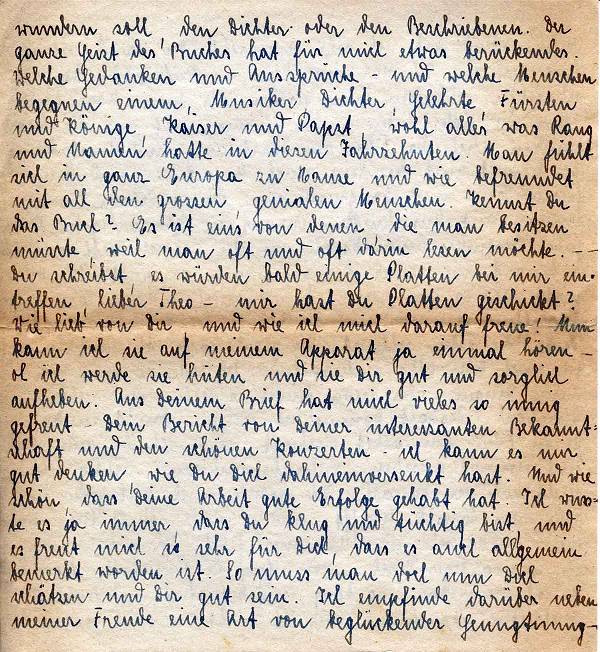 wundern soll den Dichter oder den Beschriebenen. Der
ganze Geist des Buches hat für mich etwas berückendes.
Welche Gedanken und Aussprüche - und welche Menschen
begegnen einem, Musiker, Dichter, Gelehrte, Fürsten
und Könige, Kaiser und Papst, wohl alles, was Rang
und Namen hatte in diesen Jahrzehnten. Man fühlt
sich in ganz Europa zu Hause und wie befreundet
mit all den grossen genialen Menschen. Kennst Du
das Buch? Es ist eins von denen, die man besitzen
müsste, weil man oft und oft darin lesen möchte. —
Du schreibst, es würden bald einige Platten bei mir ein-
treffen, lieber Theo - mir hast Du Platten geschickt?
Wie lieb von Dir, und wie ich mich darauf freue! Nun
kann ich sie auf meinem Apparat ja einmal hören -
oh ich werde sie hüten und sie Dir gut und sorglich
aufheben. Aus Deinem Brief hat mich vieles so innig
gefreut - Dein Bericht von Deiner interessanten Bekannt-
schaft und den schönen Konzerten - ich kann es mir
gut denken, wie Du Dich dahineinversenkt hast. Und wie
schön, dass Deine Arbeit gute Erfolge gehabt hat. Ich wuss-
te es ja immer, dass Du klug und tüchtig bist, und
es freut mich so sehr für Dich, dass es auch allgemein
bemerkt worden ist. So muss man doch nun Dich
schätzen und Dir gut sein. Ich empfinde darüber neben
meiner Freude eine Art von beglückender Genugtuung -